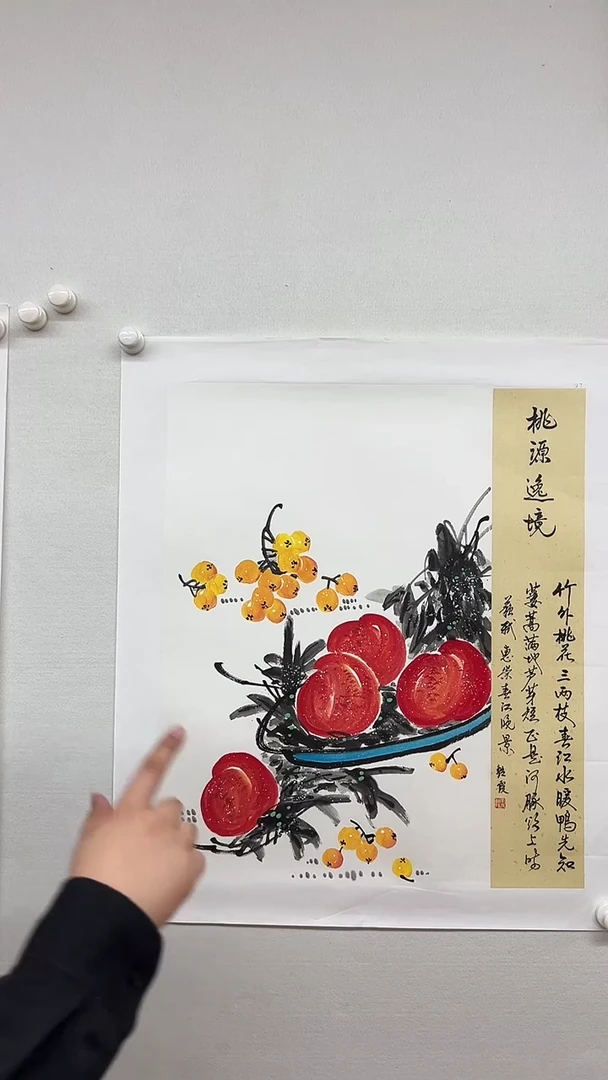 桃源逸境
竹外桃花三两枝春江水暖鸭先知
蒌蒿满地芦芽短正是河豚欲上时
苏轼惠崇春江晓景